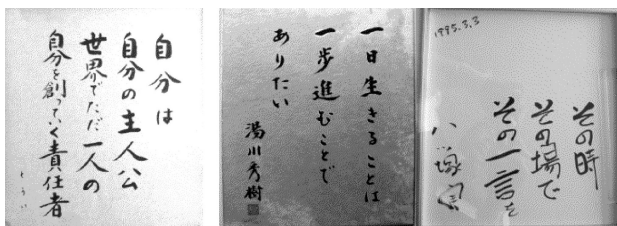 自分は
自分の主人公
世界でただ一人の
自分を創っていく責任者
一日生きることは
一歩進むことで
ありたい
湯川秀樹
1995.3.3
その時
その場で
その一言を